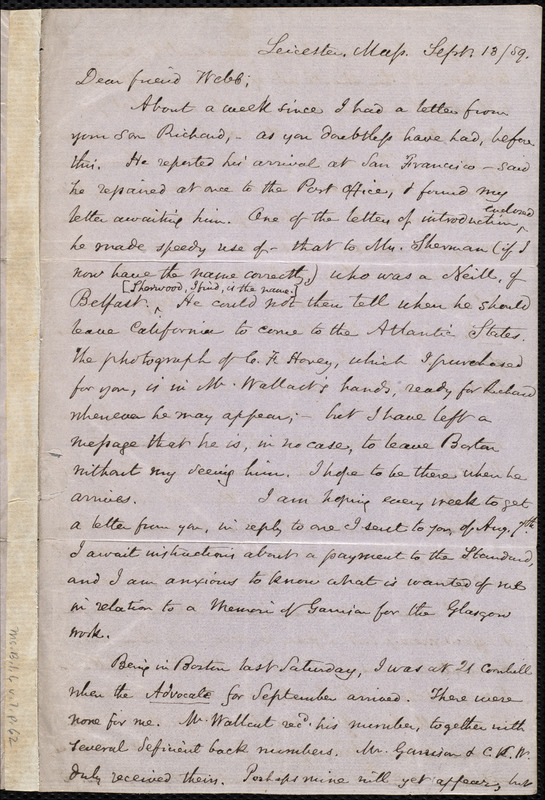 Leicester, Mass. Sept. 13/59.
Dear friend Webb;
About a week since I had a letter from
your son Richard, - as you doubtless have had, before
this. He reported his arrival at San Francisco - said
he repaired at once to the Post office, & found my
letter awaiting him. One of the letters of introduction, enclosed
he made speedy use of - that to Mrs. Sherman (if I
now have the name correctly,) who was a Neill, of
[Sherwood, I find, is the name.]
Belfast. He could not then tell when he should
leave California to come to the Atlantic States.
The photograph of C. F. Hovey, which I purchased
for you, is in Mr. Wallcut's hands, ready for Richard
whenever he may appear; - but I have left a
message that he is, in no case, to leave Boston
without my seeing him. I hope to be there when he
arrives. I am hoping every week to get
a letter from you, in reply to one I sent to you, of Aug. 7th.
I await instructions about a payment to the Standard,
and I am anxious to know what is wanted of me
in relation to a Memoir of Garrison for the Glasgow
work.
Being in Boston last Saturday, I was at 21 Cornhill
when the Advocate for September arrived. There were
none for me. Mr. Wallcut recd. his number, together with
several deficient back numbers. Mr. Garrison & C. K. W.
duly received theirs. Perhaps mine will yet appear, but
Ms.B.1.6 v.7 p.62